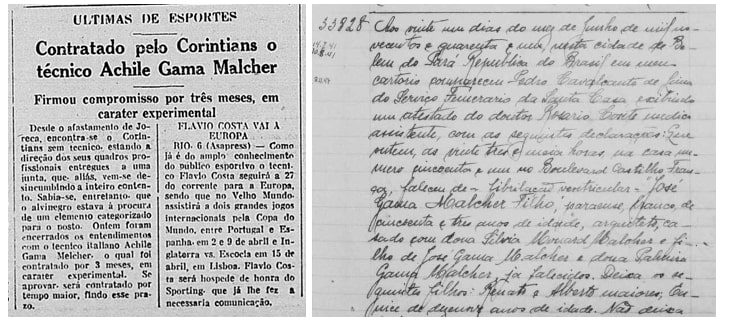 ULTIMAS DE ESPORTES
Contratado pelo Corintians o
técnico Achile Gama Malcher
Firmou compromisso por três meses, em
carater experimental
Desde o afastamento de Jo-
reca, encontra-se o Corin-
tians sem tecnico, estando a
direção dos seus quadros pro-
fissionais entregues a uma
junta, que, aliás, vem-se de-
sincumbindo a inteiro contento.
Sabia-se, entretanto, que o
alvinegro estava á procura de
um elemento categorizado
para o posto. Ontem foram
encerrados os entendimentos
com o tecnico italiano Achile
Gama Melcher, o qual foi
contratado por 3 meses, em
carater experimental. Se
aprovar, será contratado por
tempo maior, findo esse pra-
zo.
FLAVIO COSTA VAI Á
EUROPA
RIO, 6 (Asapress) — Como
já é do amplo conhecimento
do público esportivo o tecni-
co Flavio Costa seguirá a 27
do corrente para a Europa,
sendo que no Velho Mundo
assistirá a dois grandes jogos
internacionais pela Copa do
Mundo, entre Portugal e Es-
panha em 2 e 9 de abril e In-
glaterra vs. Escocia em 15 de
abril, em Lisboa. Flavio Cos-
ta será hospede de honra do
Sporting, que já lhe fez a
necessaria comunicação.
33828
Aos vinte um dias do mez de Junho de mil no-
vecentos e quarenta e um, nesta cidade de Be-
lem do Pará Republica do Brasil em meu
cartorio compareceu Pedro Cavalcante de Lima
do Serviço Funerario da Santa Casa e exibindo
um atestado do doutor Rosario Conte medico
assistente com as seguintes declarações:
ontem, ás vinte tres e meia horas, na casa nu-
mero cincoenta e um no Boulevard Castilho Fran-
ça, faleceu de - fibrilação ventricular - José
Gama Malcher Filho, paraense, branco, de
cincoenta e tres anos de idade, arquiteto, ca-
sado com dona Silvia Malcher e fi-
lho de José Gama Malcher e dona
Gama Malcher, já falecidos. Deixa os se-
guintes filhos: Renato e Alberto maiores, Eu-
rice de dezenove anos de idade. Não deixa